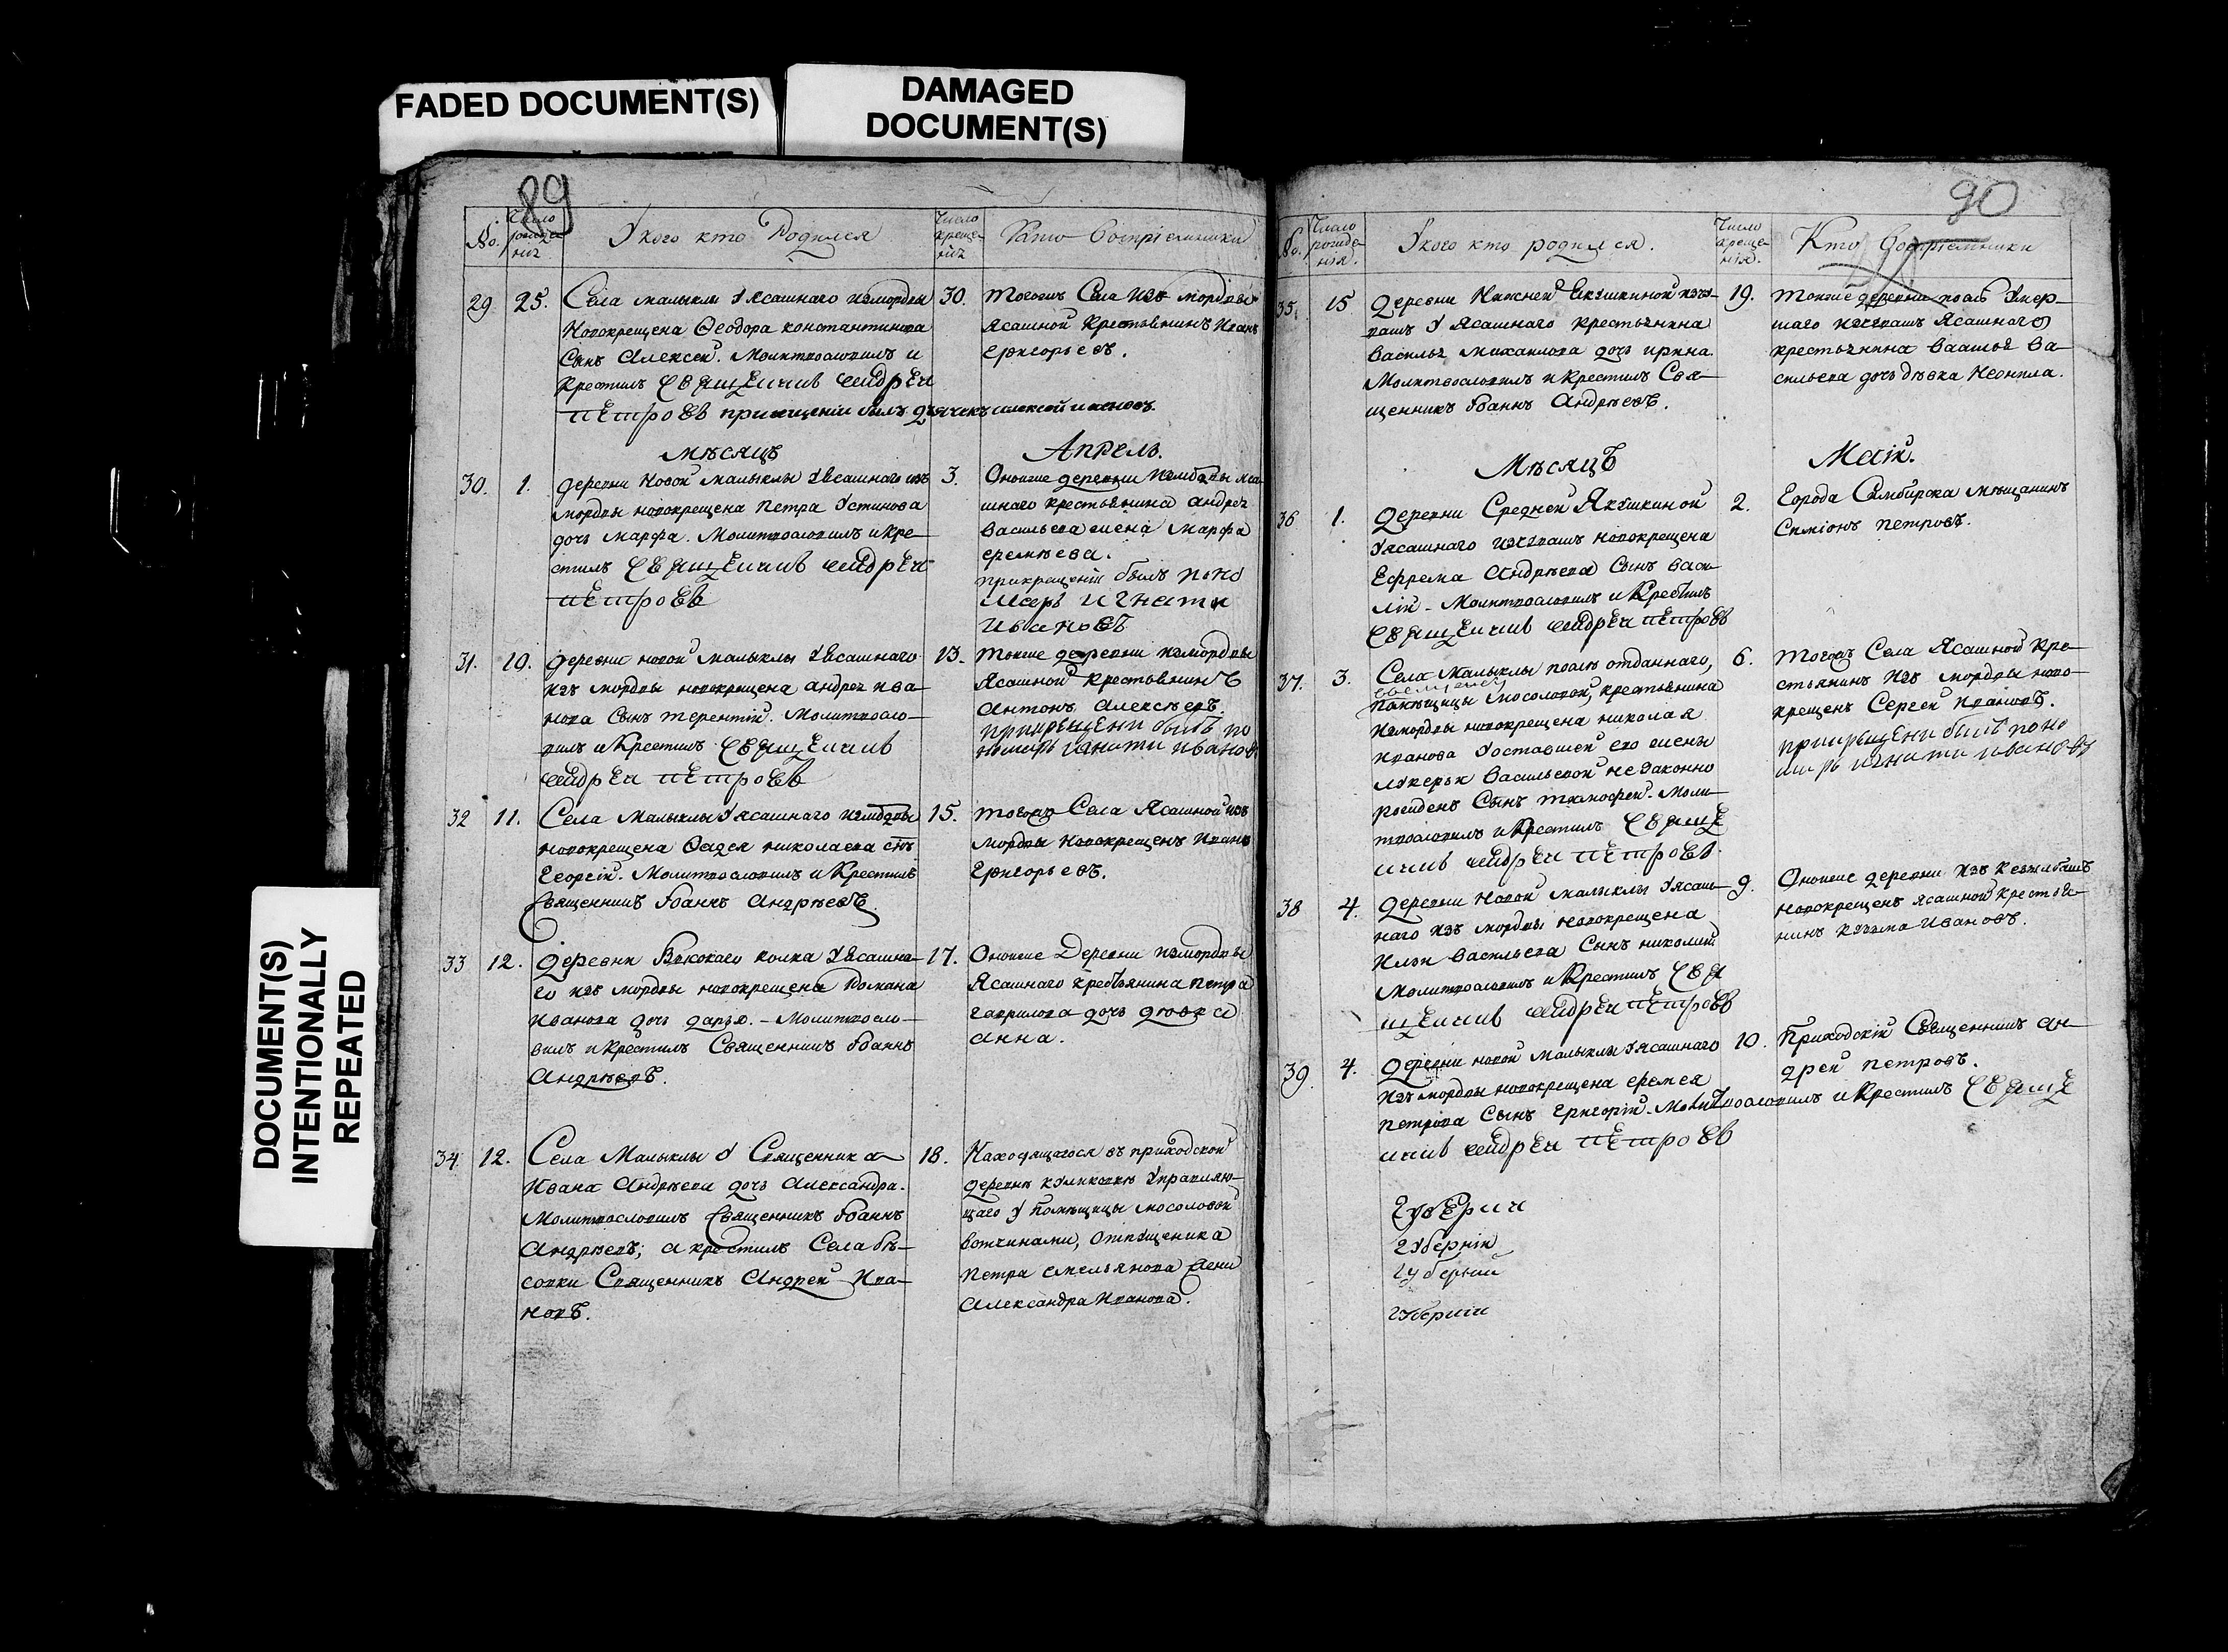 FADED DOCUMENT(S)
DAMAGED
DOCUMENT(S)
DOCUMENT(S)
INTENTIONALLY
REPEATED
89
№.
Число рожде-нія
У кого кто Родился
Число креще-нія
Кто Воспріемники
29
25.
Села малыклы У Ясашнаго измордвы
Новокрещена Ѳеодора константинова
Сынъ Алексей. Молитвословилъ и
Крестилъ священникъ андрей
петровъ при крещеніи былъ дьячекъ алексей ивановъ.
30.
тогожъ Села изъ мордвы
Ясашной Крестьянинъ Иванъ
Григорьевъ.
Мѣсяцъ Апрель.
30.
1.
деревни Новой Малыклы У Ясашнаго изъ
мордвы новокрещена Петра Устинова
дочь Марфа. Молитвословилъ и кре-
стилъ священникъ андрей
петровъ
3.
Оноиже деревни измордвы яса-
шнаго крестьянина андрея
Васильева жена Марфа
еремѣева.
прикрещеніи былъ поно
марь игнати
Ивановъ
31.
10.
деревни новой малыклы У Ясашнаго
изъ мордвы новокрещена андрея ива-
нова Сынъ терентій. Молитвосло-
вилъ и Крестилъ священникъ
андрей петровъ
13.
тоиже деревни измордвы
Ясашной крестьянинъ
Антонъ Алексѣевъ.
прикрещени былъ по
номарь игнати ивановъ
32
11.
Села Малыклы У Ясашнаго измордвы
новокрещена Ѳадея николаева снъ
Георгій. Молитвословилъ и Крестилъ
Священникъ Іоаннъ Андрѣевъ.
15.
тогожъ Села Ясашной изъ
мордвы Новокрещенъ Иванъ
Григорьевъ.
33
12.
деревни Высокаго колка У Ясашна-
го изъ мордвы новокрещена Романа
Иванова дочь дарья. - Молитвосло-
вилъ и крестилъ Священникъ Іоаннъ
Андрѣевъ.
17.
Оноиже Деревни измордвы
Ясашнаго крестьянина петра
гаврилова дочь девка
Анна.
34
12.
Села Малыклы У Священника
Ивана Андрѣева дочь Александра.
Молитвословилъ Священникъ Іоаннъ
Андрѣевъ; а крестилъ Села бѣ-
совки Священникъ Андрей Ива-
новъ.
18.
Находящагося въ приходской
деревнѣ куликовкѣ Управляю-
щаго У помѣщицы мосоловой
вотчинами, отпущеника
Петра емельянова жена
Александра Иванова.
90
№.
Число рожде-нія.
У кого кто родился.
Число креще-нія.
Кто Воспріемники
35.
15
Деревни Нижней Якушкиной изчу-
вашъ У Ясашнаго крестьянина
Василья михаилова дочь ирина.
Молитвословилъ и Крестилъ Свя-
щенникъ Іоаннъ Андрѣевъ.
19.
тоиже деревни
шаго изчувашъ Ясашнаго
крестьянина Василья Ва-
сильева дочь дѣвка Неонила.
Мѣсяцъ Маій.
36
1.
деревни Средней Якушкиной
У ясашнаго изчувашъ новокрещена
Ефрема Андрѣева Сынъ васи-
лій - Молитвословилъ и Крестилъ
священникъ андрей петровъ
2.
Города Симбирска мѣщанинъ
Симіонъ петровъ.
37.
3.
Села Малыклы отданнаго,
помѣщицы мосоловой, крестьянина
измордвы новокрещена николая
Иванова У оставшей его жены
лукерьи Васильевой незаконно
рожденъ Сынъ тимофей. Моли-
твословилъ и Крестилъ Священ
никъ андрей петровъ.
6.
тогожъ Села Ясашной кре-
стьянинъ изъ мордвы ново-
крещенъ Сергей Ивановъ.
прикрещени былъ поно
марь игнати ивановъ
38
4.
деревни Новой малыклы У ясаш-
наго изъ мордвы новокрещена
Ильи Васильева Сынъ николай
Молитвословилъ и Крестилъ Свя
щенникъ андрей петровъ
9.
Оноиже деревни изъ
новокрещенъ ясашной крестья-
нинъ кузьма Ивановъ.
39.
4.
деревни новой малыклы У ясашнаго
изъ мордвы новокрещена еремея
петрова Сынъ Григорій. Молитвословилъ и Крестилъ Священ
никъ андрей петровъ
10.
Приходскій Священникъ Ан-
дрей петровъ.
Губернии
Губерніи
губернии
губернии